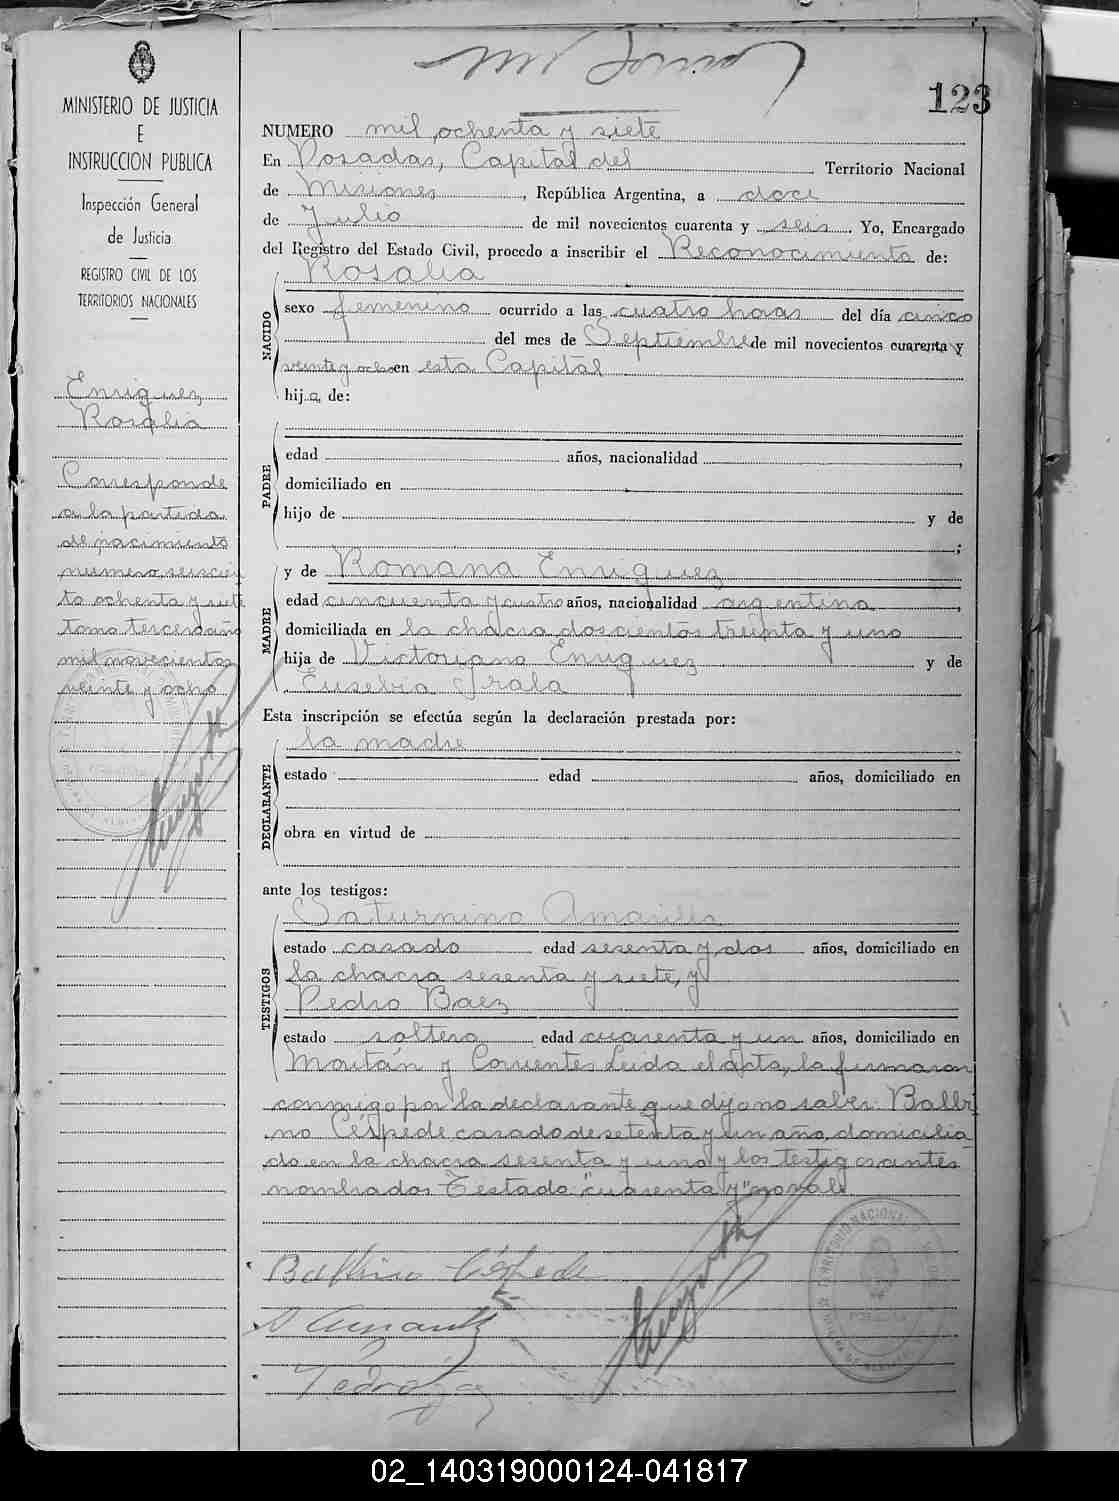 123
MINISTERIO DE JUSTICIA
E
INSTRUCCION PUBLICA
Inspección General
de Justicia
REGISTRO CIVIL DE LOS
TERRITORIOS NACIONALES
Enriquez
Rosalia
Corresponde
a la partida
de nacimiento
numero seiscien
to ochenta y siete
tomo tercero año
mil novecientos
veinte y ocho
NUMERO mil ochenta y siete
En Posadas, Capital del Territorio Nacional
de Misiones, República Argentina, a doce
de Julio de mil novecientos cuarenta y seis. Yo, Encargado
del Registro del Estado Civil, procedo a inscribir el Reconocimiento de:
Rosalia
NACIDO
sexo femenino ocurrido a las cuatro horas del día cinco
del mes de Septiembre de mil novecientos cuarenta y
veinte y ocho en esta Capital
hija de:
PADRE
edad años, nacionalidad ,
domiciliado en
hijo de y de
;
y de Romana Enriquez
MADRE
edad cincuenta y cuatro años, nacionalidad argentina,
domiciliada en la chacra doscientos treinta y uno
hija de Victoriano Enriquez y de
Eusebia Irala
Esta inscripción se efectúa según la declaración prestada por:
la madre
DECLARANTE
estado edad años, domiciliado en
obra en virtud de
ante los testigos:
Saturnino Amarilla
TESTIGOS
estado casado edad sesenta y dos años, domiciliado en
la chacra sesenta y siete, y
Pedro Baez
estado soltero edad cuarenta y un años, domiciliado en
y Corrientes Leida el acta, la firmaron
conmigo por la declarante que dijo no saber Balbi
no Céspede casado de setenta y un año, domicilia
do en la chacra sesenta y uno y los testigos antes
nombrados Testado: "cuarenta y" no vale
Balbino Céspede
02_140319000124-041817